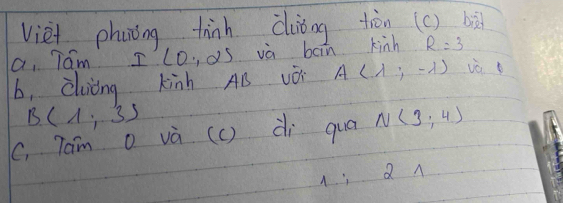 Viết phương tình đường tròn (C) biết
a, Tâm I (0; 2) và bán kính R=3
b, đường kính AB với A (1; -1) và
B (1; 3)
C, Tâm O và (C) đi qua N (3; 4)
1; 2 1